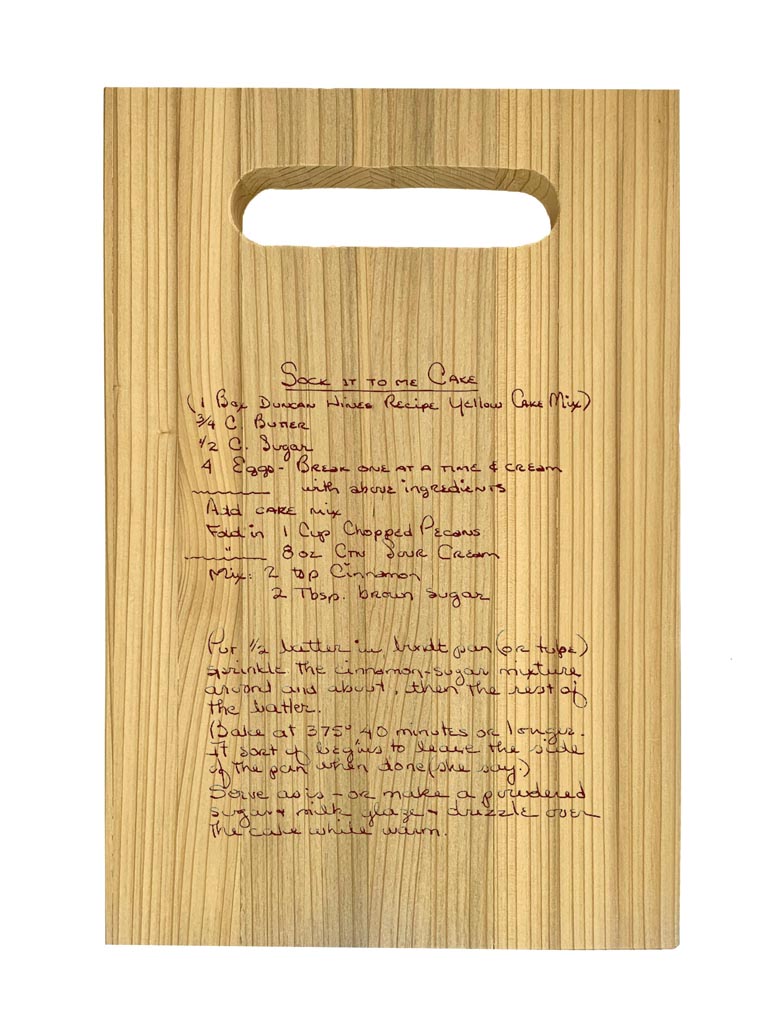 Sock it to me Cake
(1 Box Duncan Hines Recipe Yellow Cake Mix)
3/4 C. Butter
1/2 C. Sugar
4 Eggs - Break one at a time & cream
with above ingredients
Add cake mix
Fold in 1 Cup Chopped Pecans
" 8 oz Ctn Sour Cream
Mix: 2 tsp Cinnamon
2 Tbsp. brown sugar
Put 1/2 batter in bundt pan (or tube)
sprinkle the cinnamon-sugar mixture
around and about, then the rest of
the batter.
(Bake at 375° 40 minutes or longer.
It sort of begins to leave the side
of the pan when done (she say.)
Serve as is - or make a powdered
sugar & milk glaze & drizzle over
the cake while warm.